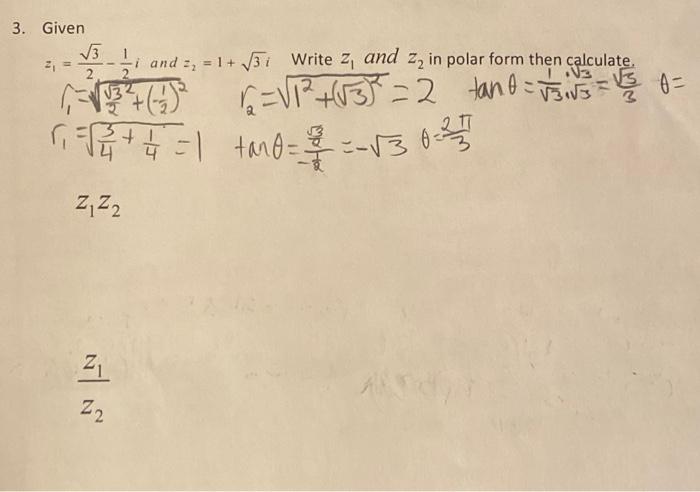 3. Given
z₁ = √3/2 - 1/2 i and z₂ = 1 + √3 i Write z₁ and z₂ in polar form then calculate.
r₁ = √(√3/2² + (-1/2)²) r₂ = √(1² + (√3)²) = 2 tan θ = 1/√3 · √3/√3 = √3/3 θ =
r₁ = √(3/4 + 1/4) = 1 tan θ = (√3/2)/(-1/2) = -√3 θ = 2π/3
z₁z₂
z₁/z₂